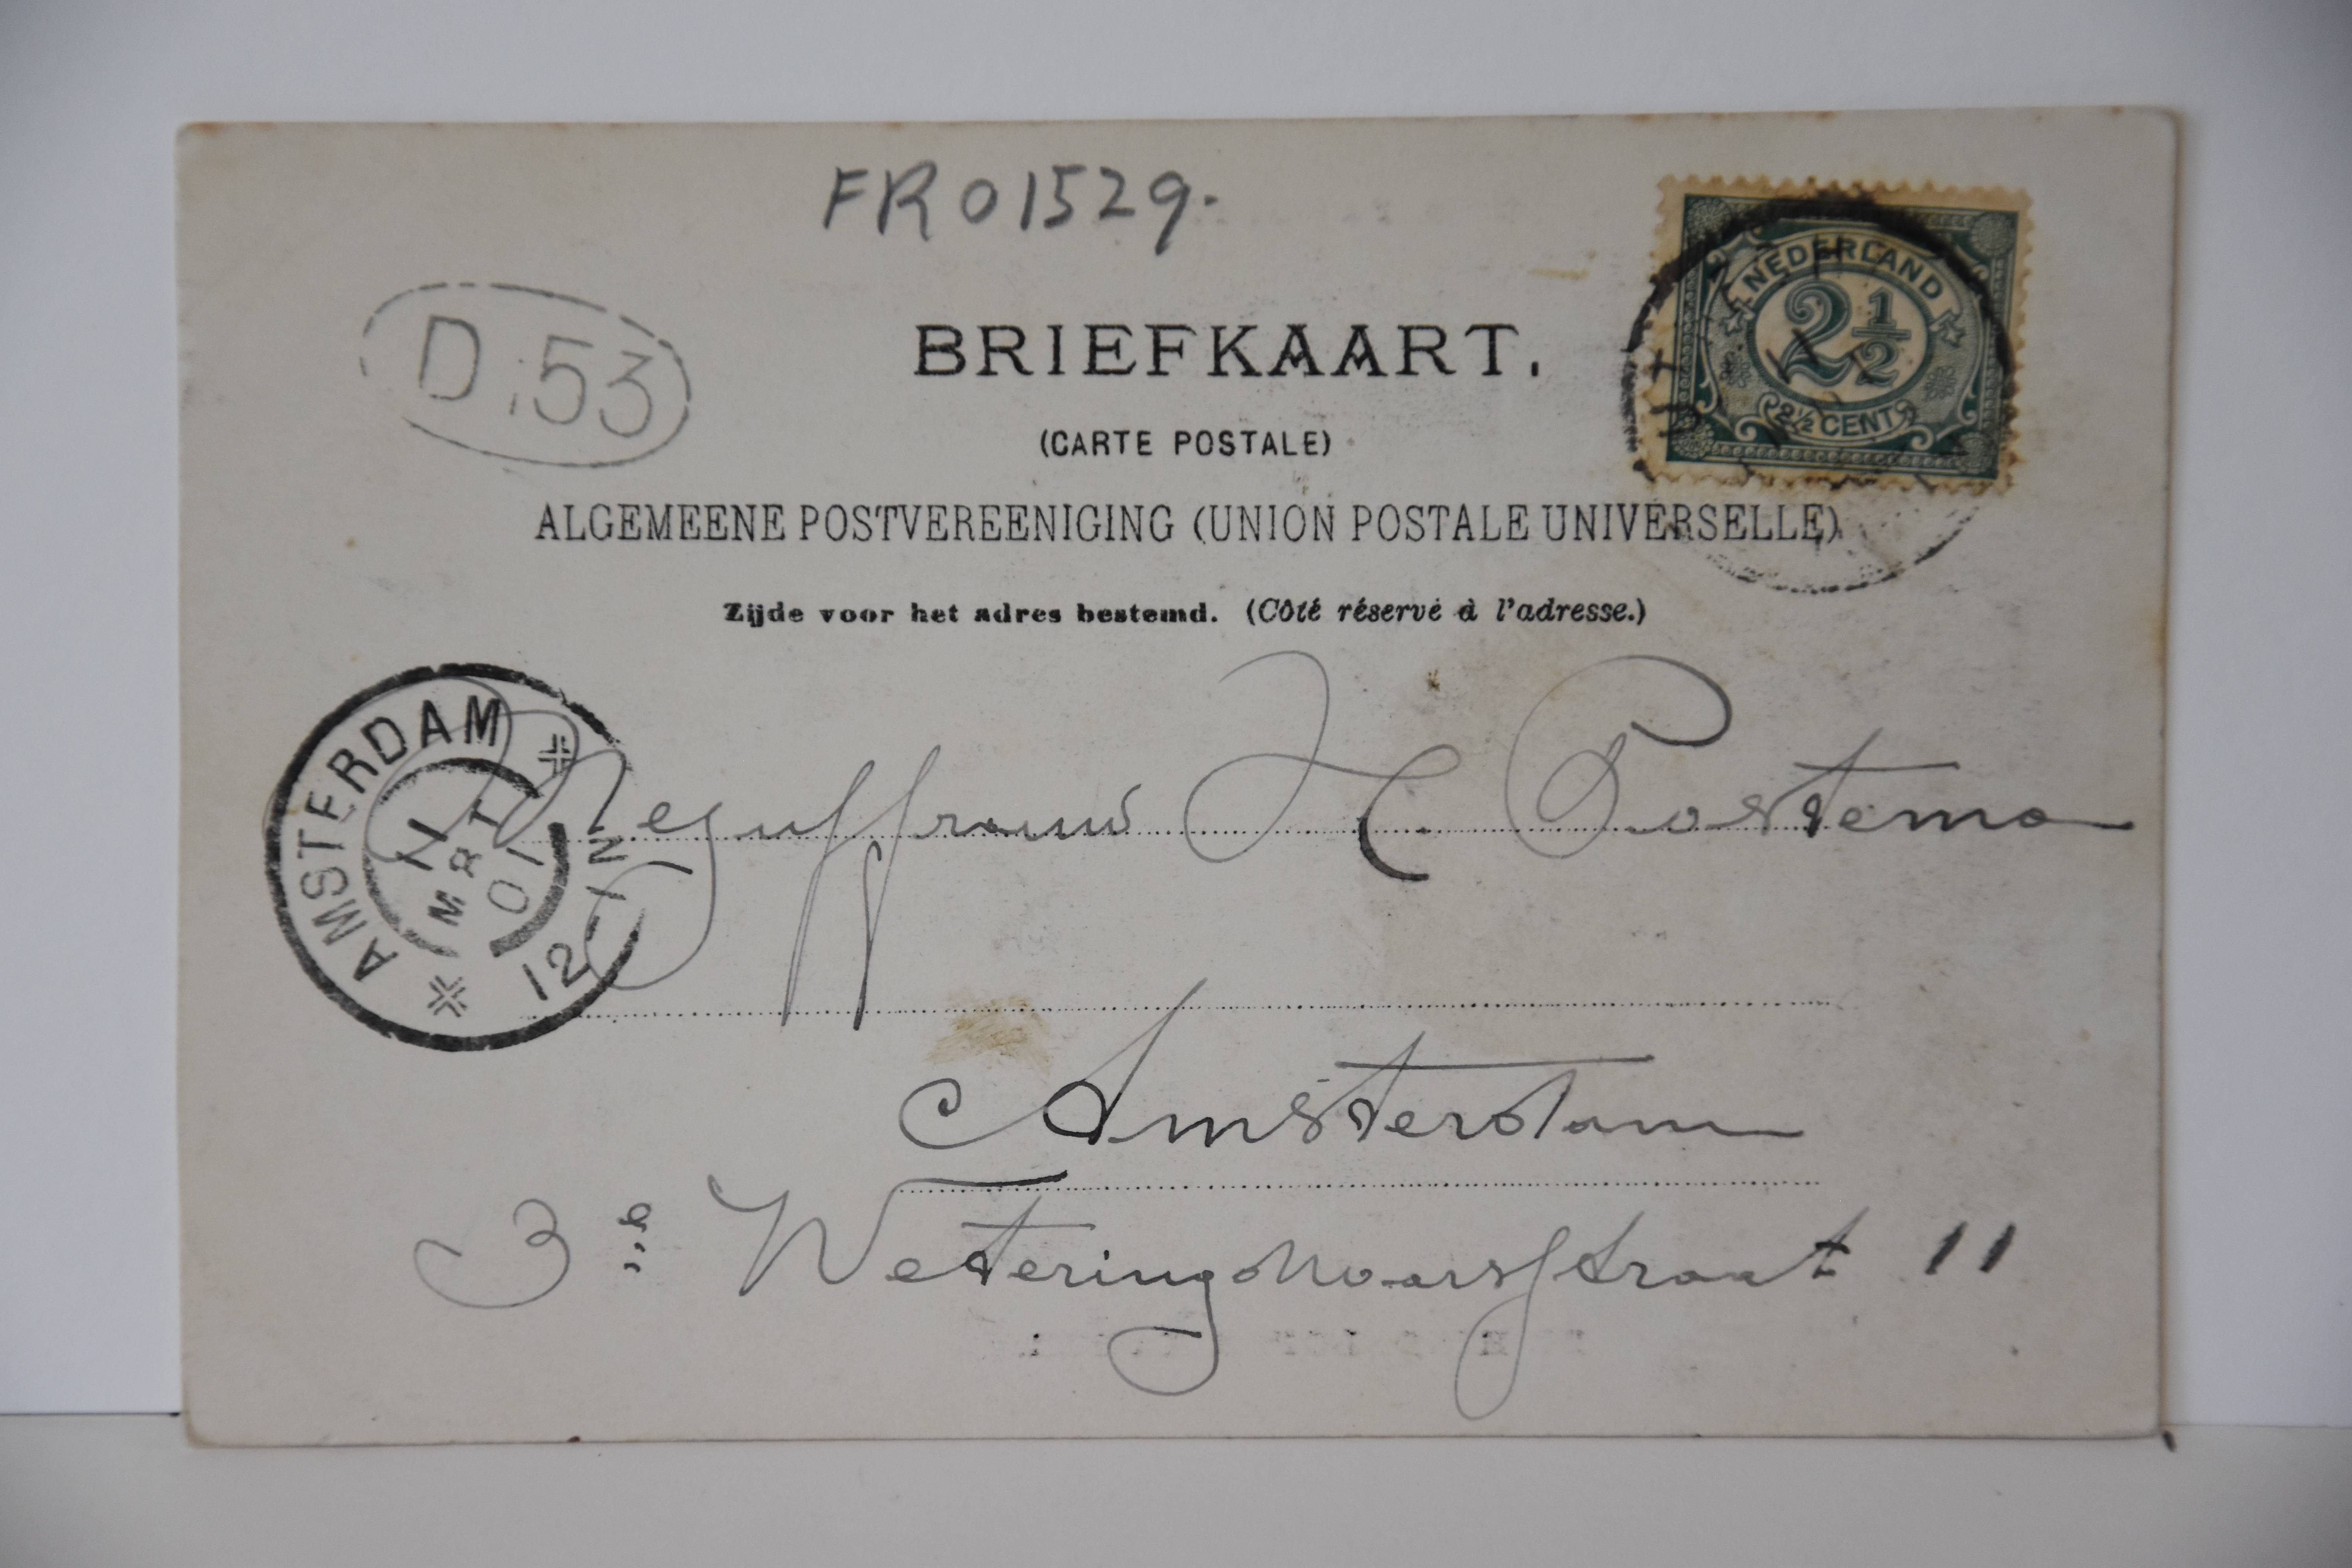 FR01529.
D:53
NEDERLAND
2½
2½ CENT
BRIEFKAART.
(CARTE POSTALE)
ALGEMEENE POSTVEREENIGING (UNION POSTALE UNIVERSELLE)
Zijde voor het adres bestemd. (Côté réservé à l'adresse.)
AMSTERDAM
11
MRT
01
12-1N
Mejuffrouw H Postema
Amsterdam
3e Wetering dwarsstraat 11